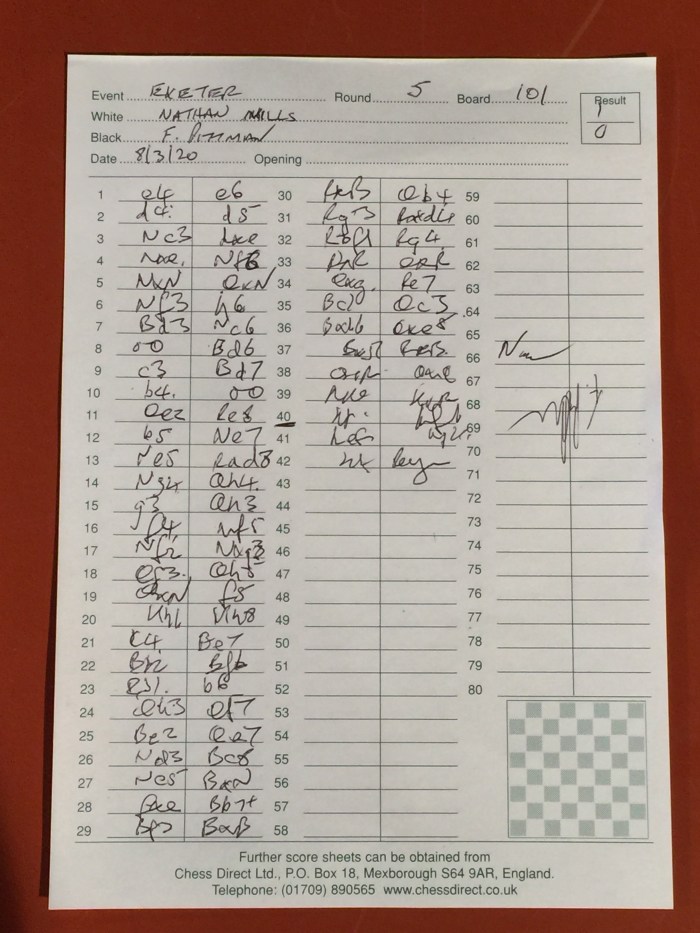 Event EXETER Round 5 Board 101 Result
White NATHAN MILLS 1
Black F. PITTMAN 0
Date 8/3/20 Opening
1 e4 e6
2 d4 d5
3 Nc3 dxe
4 Nxe Nf6
5 NxN QxN
6 Nf3 h6
7 Bd3 Nc6
8 00 Bd6
9 c3 Bd7
10 b4 00
11 Qe2 Re8
12 b5 Ne7
13 Ne5 Rad8
14 Ng4 Qh4
15 g3 Qh3
16 f4 Nf5
17 Nf2 Nxg3
18 Qf3 Qh5
19 QxN f5
20 Kh1 Kh8
21 c4 Be7
22 Bb2 Bf6
23 b6
24 Qh3 Qf7
25 Be2 Qe7
26 Nd3 Bc8
27 Ne5 BxN
28 fxe Bb7+
29 Bf3 BxB
30 RxB Qb4
31 Rg3 Rxd4
32 Rg4
33 RxR QxR
34 Qxg Re7
35 Bc1 Qc3
36
37
38
39
40
41
42
43
44
45
46
47
48
49
50
51
52
53
54
55
56
57
58
59
60
61
62
63
64
65
66
67
68
69
70
71
72
73
74
75
76
77
78
79
80
Further score sheets can be obtained from
Chess Direct Ltd., P.O. Box 18, Mexborough S64 9AR, England.
Telephone: (01709) 890565 www.chessdirect.co.uk